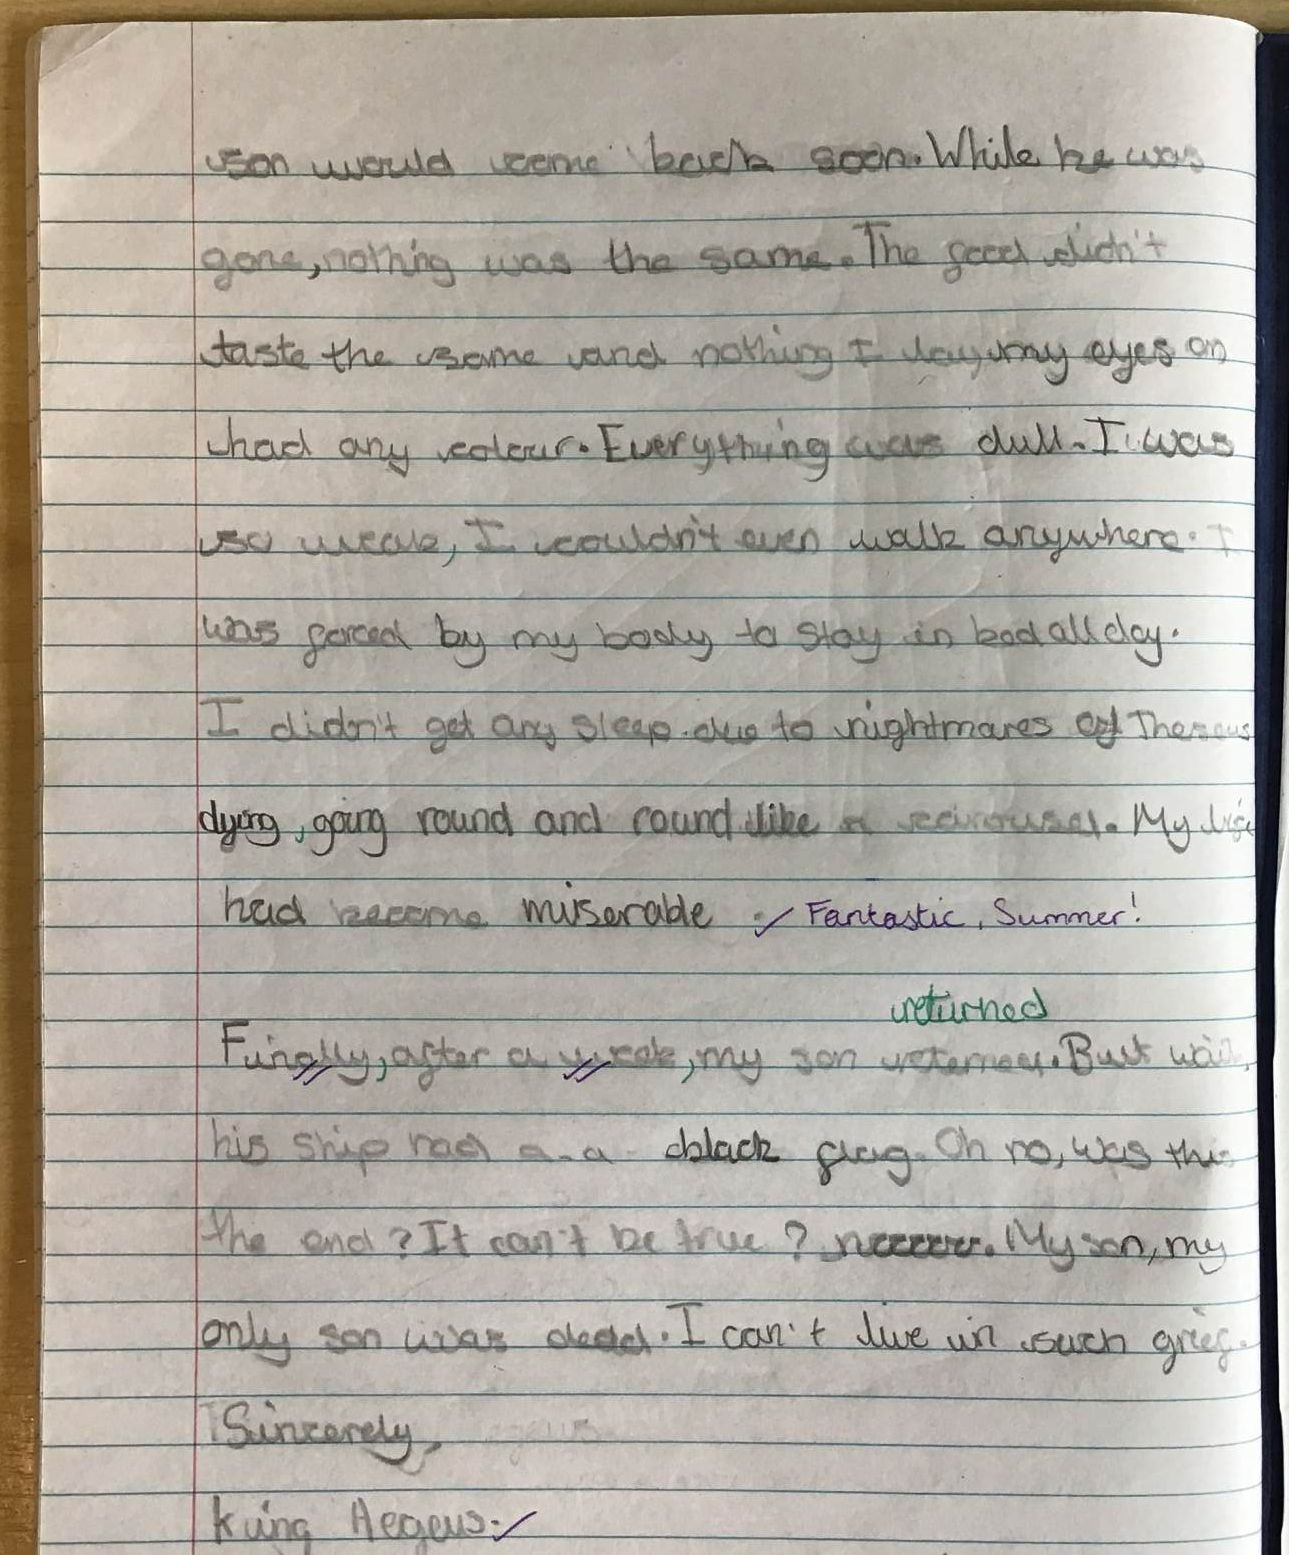 son would come back soon. While he was
gone, nothing was the same. The food didn't
taste the same and nothing I lay my eyes on
had any colour. Everything was dull. I was
so weak, I couldn't even walk anywhere. I
was forced by my body to stay in bed all day.
I didn't get any sleep due to nightmares of Theseus
dying, going round and round like a carousel. My life
had become miserable. Fantastic, Summer!
returned
Finally, after a week, my son . But wait,
his ship had a a black flag. Oh no, was this
the end? It can't be true? My son, my
only son was dead. I can't live in such grief.
Sincerely,
King Aegeus.